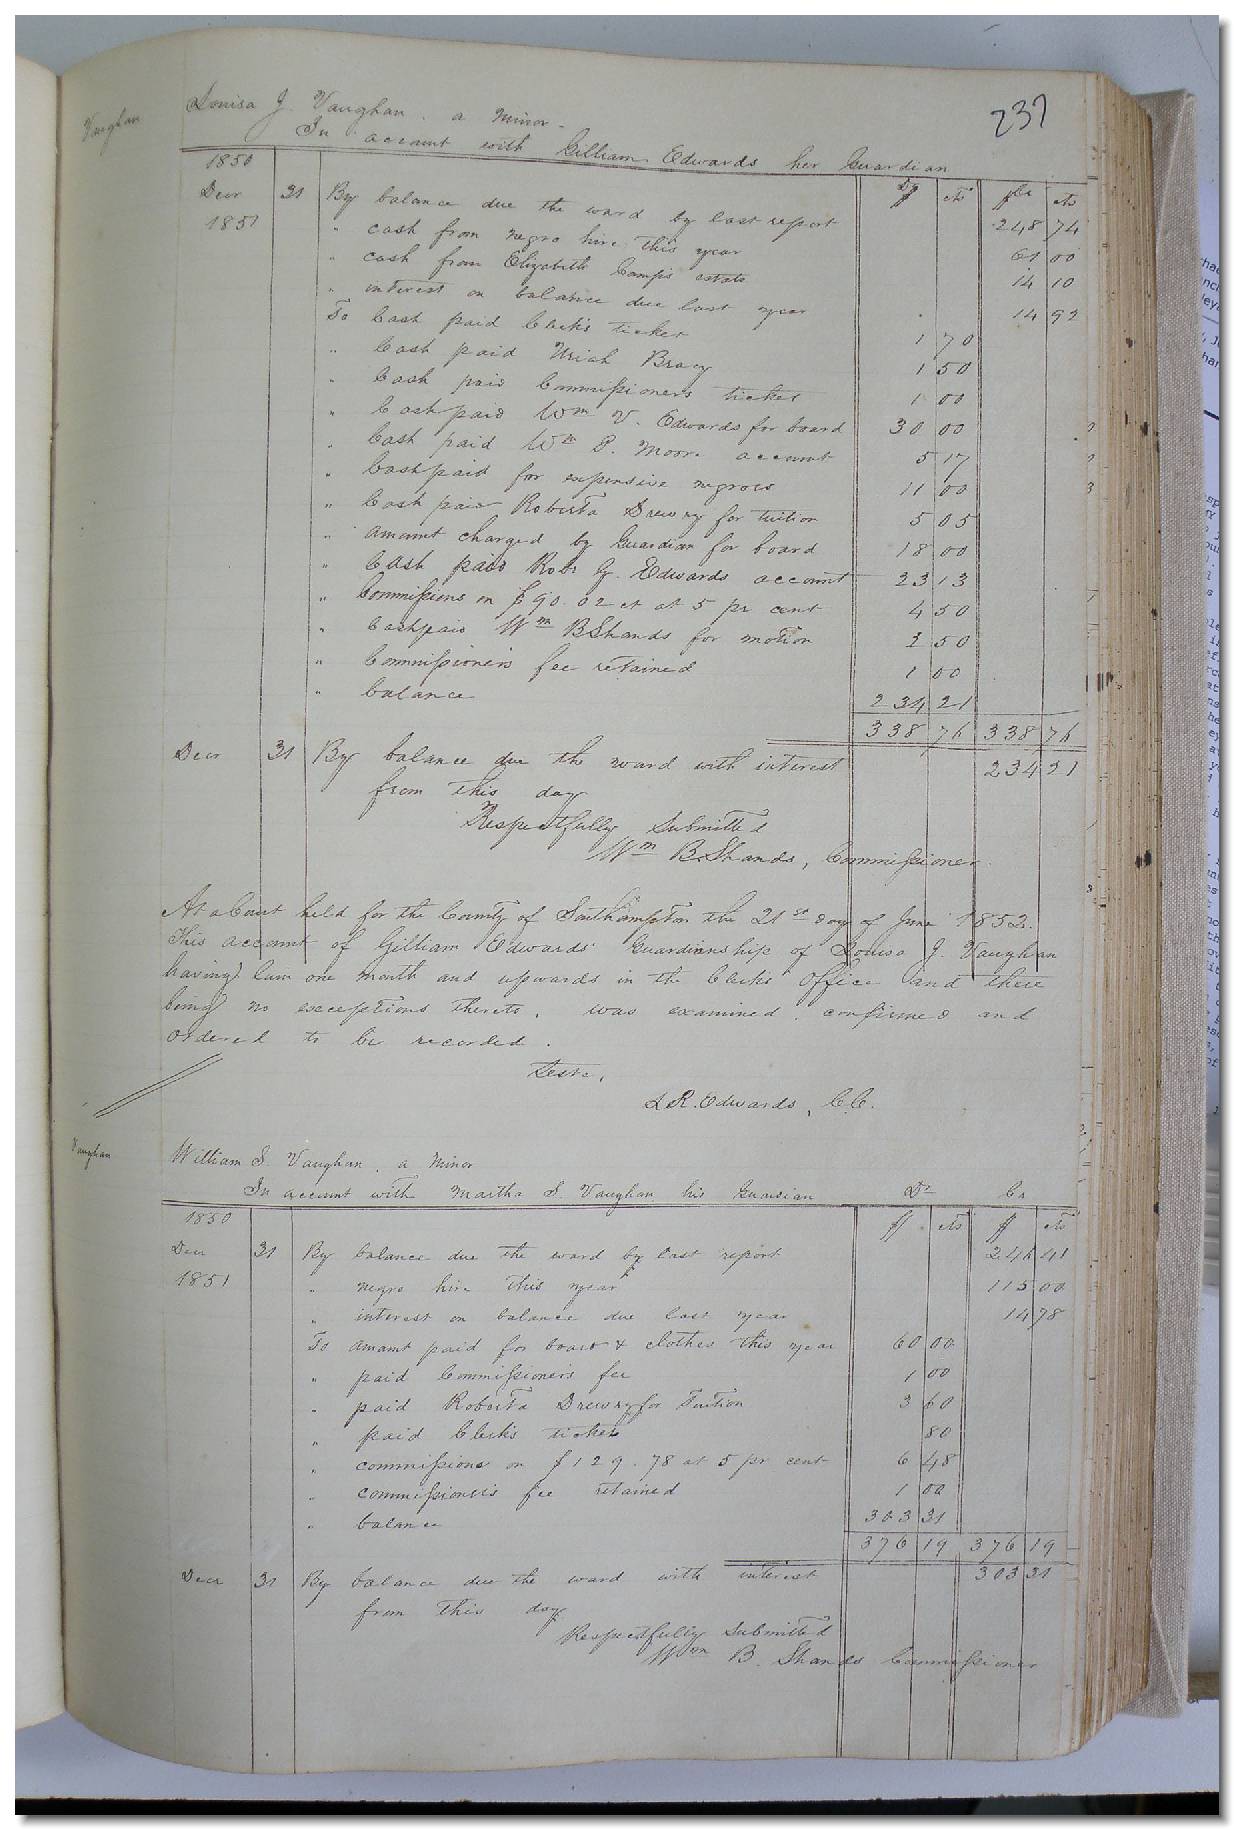 237
Vaughan
Louisa J. Vaughan. a Minor.
In account with Gilliam Edwards her Guardian
1850 $ Dr cts $ Cr cts
Decr 31 By balance due the ward by last report 248 74
1851 " cash from negro hire this year 61 00
" cash from Elizabeth Camp's estate 14 10
" interest on balance due last year 14 92
To Cash paid Clerk's ticket 1 70
" Cash paid Uriah Bracy 1 50
" Cash paid Commissioners ticket 1 00
" Cash paid Wm V. Edwards for board 30 00
" Cash paid Wm P. Moore account 5 17
" Cash paid for expensive negroes 11 00
" Cash paid Roberta Drewry for tuition 5 05
" amount charged by Guardian for board 18 00
" Cash paid Robt G. Edwards account 23 13
" Commissions on $90.02 ct at 5 pr cent 4 50
" Cash paid Wm B Shands for motion 2 50
" Commissioners fee retained 1 00
" balance 234 21
338 76 338 76
Decr 31 By balance due the ward with interest 234 21
from this day
Respectfully Submitted
Wm B. Shands, Commissioner
At a Court held for the County of Southampton the 21st day of June 1852.
This account of Gilliam Edwards' Guardianship of Louisa J. Vaughan
having lain one month and upwards in the Clerks Office and there
being no exceptions thereto, was examined, confirmed and
ordered to be recorded.
Teste,
L R. Edwards, C.C.
Vaughan
William S. Vaughan, a Minor
In account with Martha S. Vaughan his Guardian Dr Cr
1850 $ cts $ cts
Decr 31 By balance due the ward by last report 246 41
1851 " negro hire this year 115 00
" interest on balance due last year 14 78
To amount paid for board & clothes this year 60 00
" paid Commissioners fee 1 00
" paid Roberta Drewry for Tuition 3 60
" paid Clerk's ticket 80
" commissions on $129.78 at 5 pr cent 6 48
" commissioner's fee retained 1 00
" balance 303 31
376 19 376 19
Decr 31 By balance due the ward with interest 303 31
from this day
Respectfully Submitted
Wm B. Shands Commissioner